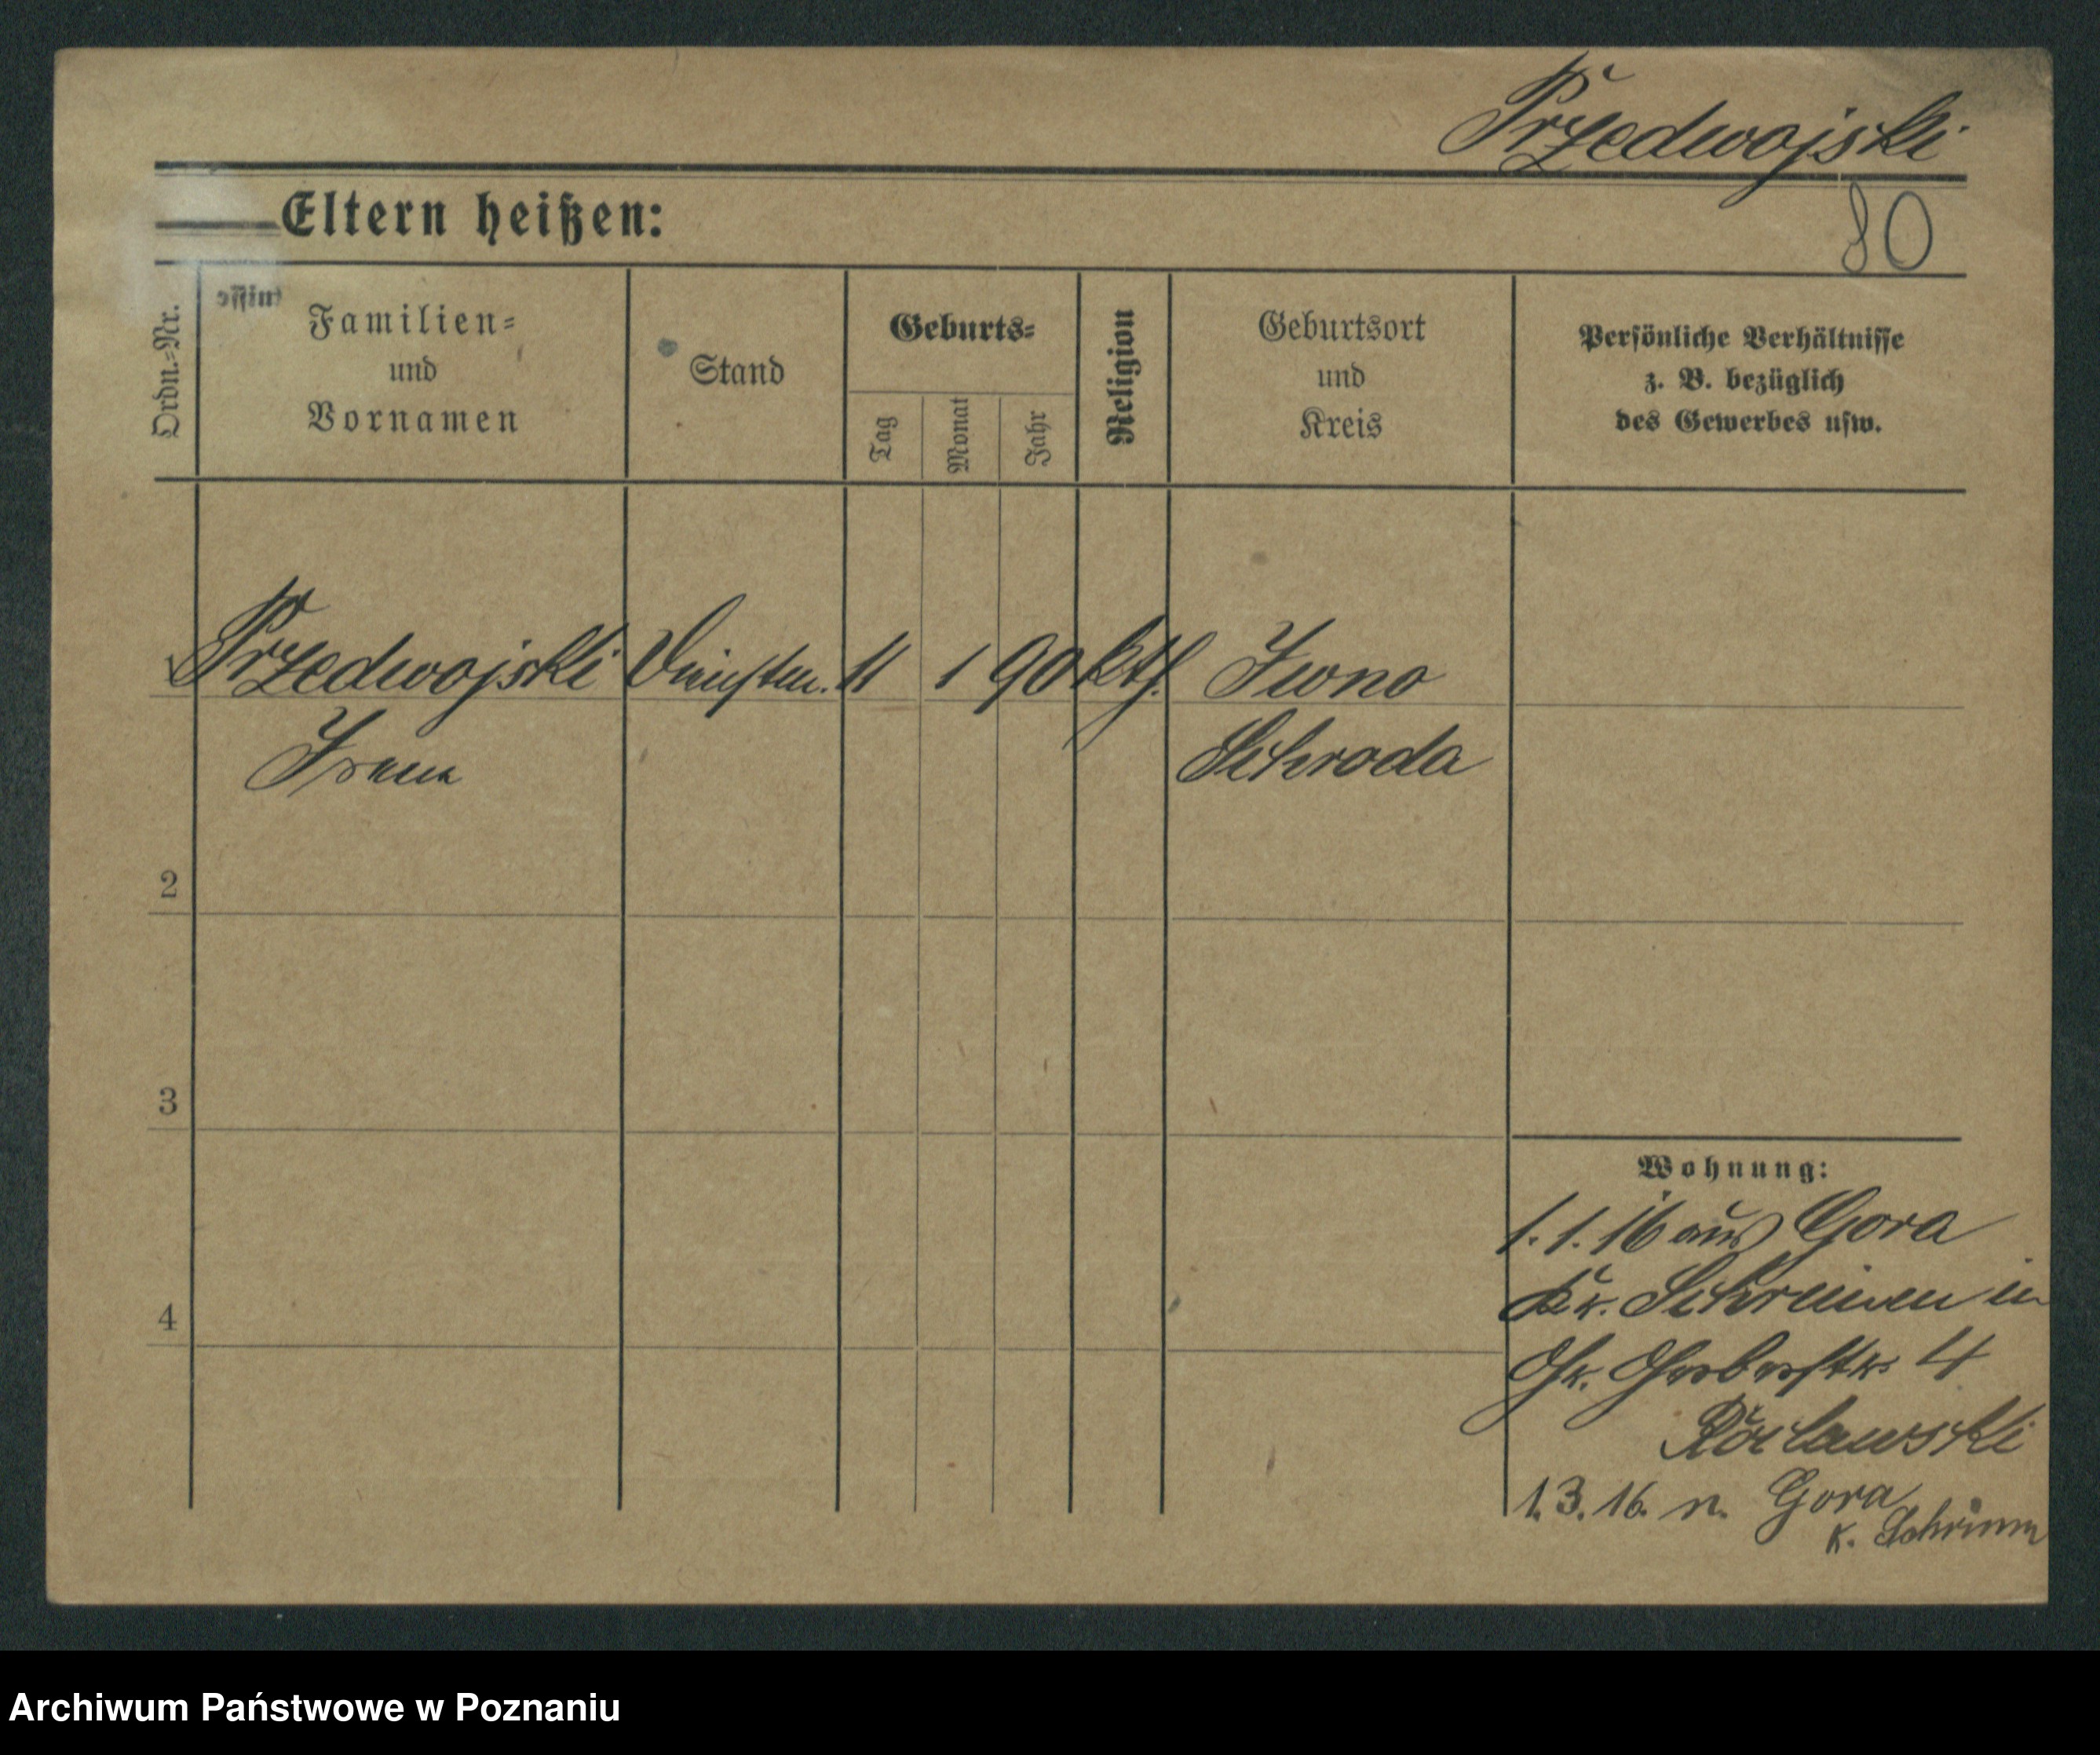 Przedwojski
80
Eltern heißen:
Ordn.-Nr.
Familien-
und
Vornamen
Stand
Geburts-
Tag
Monat
Jahr
Religion
Geburtsort
und
Kreis
Persönliche Verhältnisse
z. B. bezüglich
des Gewerbes usw.
Przedwojski 11 1 90 kth. Iwno
Schroda
2
3
4
Wohnung:
1.1.16 aus Gora
Kr. in
Gr. Gerberstr. 4
1.3.16. n. Gora
K. Schrimm
Archiwum Państwowe w Poznaniu